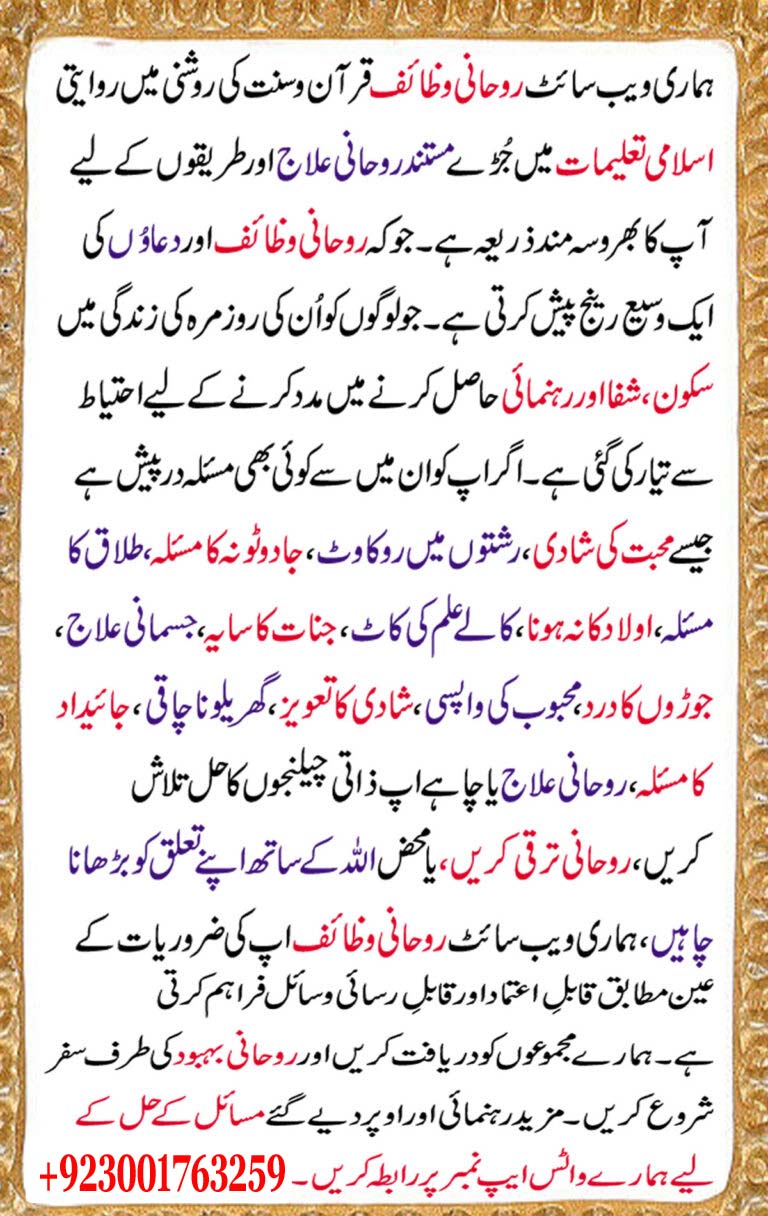 ہماری ویب سائٹ روحانی وظائف قرآن و سنت کی روشنی میں روایتی
اسلامی تعلیمات میں جُڑے مستند روحانی علاج اور طریقوں کے لیے
آپ کا بھروسہ مند ذریعہ ہے۔ جو کہ روحانی وظائف اور دعاؤں کی
ایک وسیع رینج پیش کرتی ہے۔ جو لوگوں کو اُن کی روزمرہ کی زندگی میں
سکون، شفا اور رہنمائی حاصل کرنے میں مدد کرنے کے لیے احتیاط
سے تیار کی گئی ہے۔ اگر اپ کو ان میں سے کوئی بھی مسئلہ درپیش ہے
جیسے محبت کی شادی، رشتوں میں روکاوٹ، جادو ٹونہ کا مسئلہ، طلاق کا
مسئلہ، اولاد کا نہ ہونا، کالے علم کی کاٹ، جنات کا سایہ، جسمانی علاج،
جوڑوں کا درد، محبوب کی واپسی، شادی کا تعویز، گھریلو ناچاقی، جائیداد
کا مسئلہ، روحانی علاج یا چاہے اپ ذاتی چیلنجوں کا حل تلاش
کریں، روحانی ترقی کریں، یا محض اللہ کے ساتھ اپنے تعلق کو بڑھانا
چاہیں، ہماری ویب سائٹ روحانی وظائف اپ کی ضروریات کے
عین مطابق قابلِ اعتماد اور قابلِ رسائی وسائل فراہم کرتی
ہے۔ ہمارے مجموعوں کو دریافت کریں اور روحانی بہبود کی طرف سفر
شروع کریں۔ مزید رہنمائی اور اوپر دیے گئے مسائل کے حل کے
لیے ہمارے واٹس ایپ نمبر پر رابطہ کریں۔ +923001763259